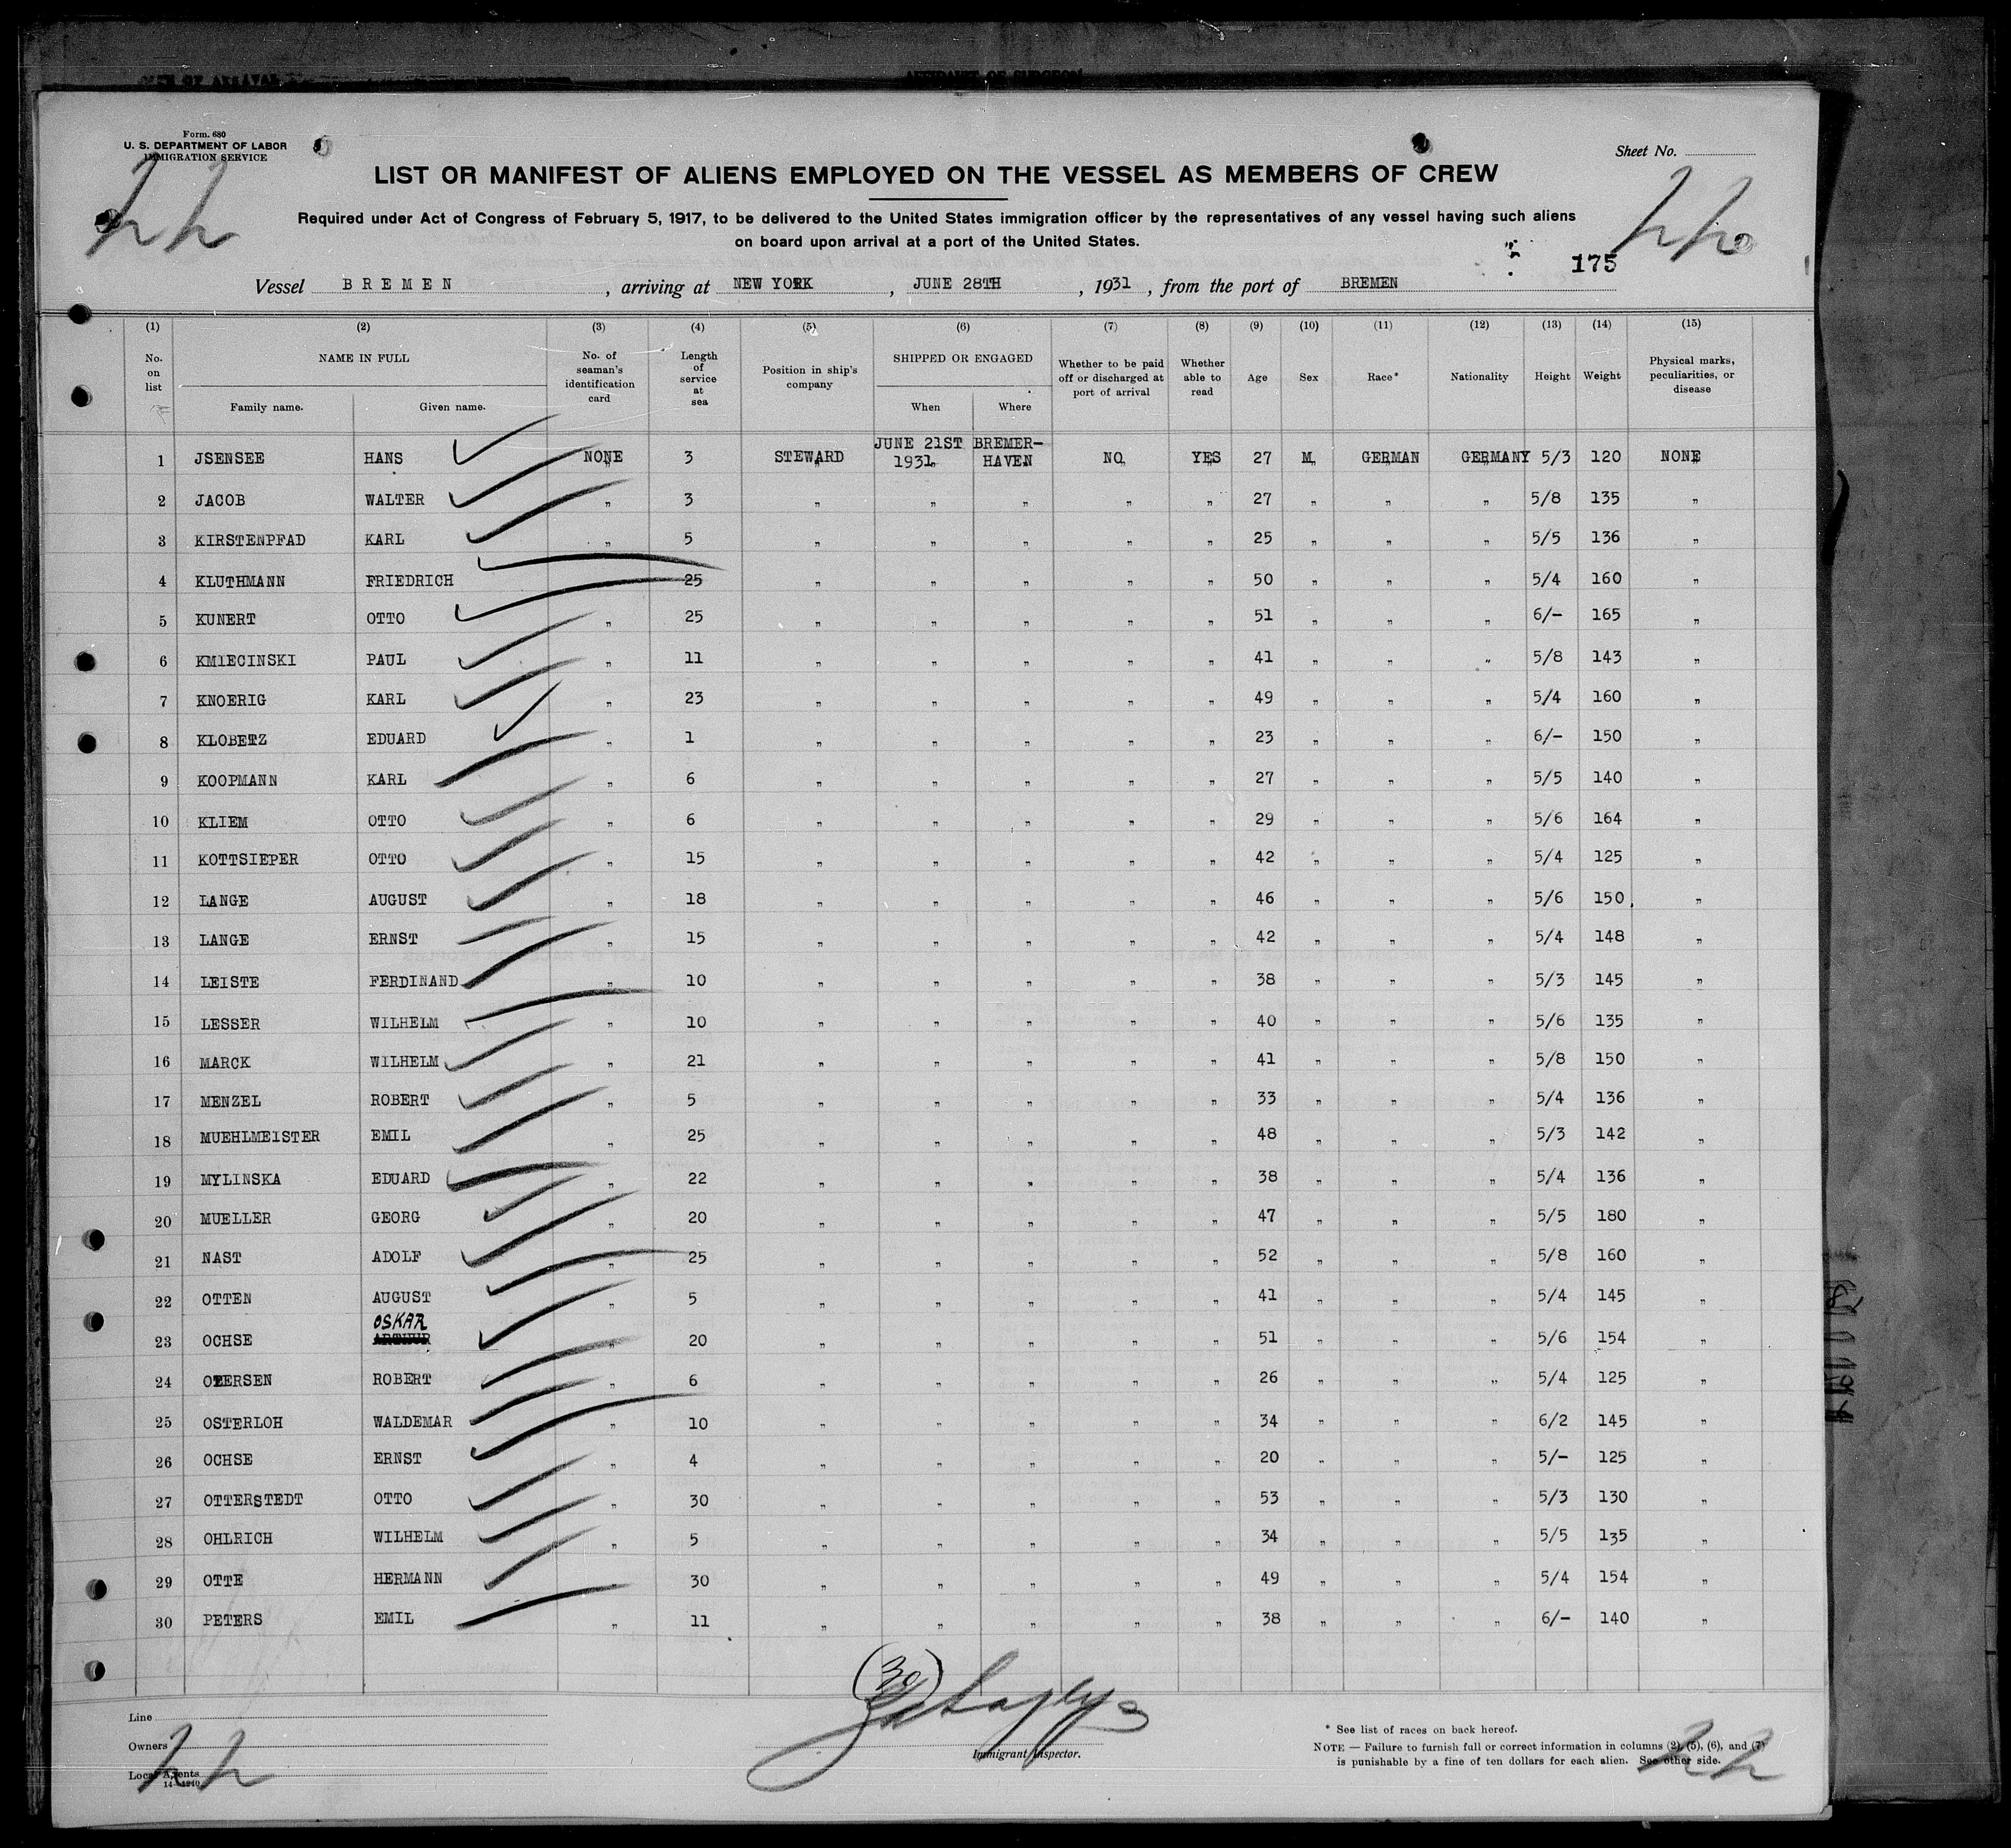 Form. 680
U. S. DEPARTMENT OF LABOR
IMMIGRATION SERVICE
Sheet No.
LIST OR MANIFEST OF ALIENS EMPLOYED ON THE VESSEL AS MEMBERS OF CREW
Required under Act of Congress of February 5, 1917, to be delivered to the United States immigration officer by the representatives of any vessel having such aliens
on board upon arrival at a port of the United States.
175
Vessel BREMEN, arriving at NEW YORK, JUNE 28TH, 1931, from the port of BREMEN
(1) (2) (3) (4) (5) (6) (7) (8) (9) (10) (11) (12) (13) (14) (15)
No. on list NAME IN FULL Family name. Given name. No. of seaman's identification card Length of service at sea Position in ship's company SHIPPED OR ENGAGED When Where Whether to be paid off or discharged at port of arrival Whether able to read Age Sex Race* Nationality Height Weight Physical marks, peculiarities, or disease
1 JSENSEE HANS NONE 3 STEWARD JUNE 21ST 1931 BREMER-HAVEN NO YES 27 M GERMAN GERMANY 5/3 120 NONE
2 JACOB WALTER " 3 " " " " " 27 " " " 5/8 135 "
3 KIRSTENPFAD KARL " 5 " " " " " 25 " " " 5/5 136 "
4 KLUTHMANN FRIEDRICH 25 " " " " " 50 " " " 5/4 160 "
5 KUNERT OTTO " 25 " " " " " 51 " " " 6/- 165 "
6 KMIECINSKI PAUL " 11 " " " " " 41 " " " 5/8 143 "
7 KNOERIG KARL " 23 " " " " " 49 " " " 5/4 160 "
8 KLOBETZ EDUARD " 1 " " " " " 23 " " " 6/- 150 "
9 KOOPMANN KARL " 6 " " " " " 27 " " " 5/5 140 "
10 KLIEM OTTO " 6 " " " " " 29 " " " 5/6 164 "
11 KOTTSIEPER OTTO " 15 " " " " " 42 " " " 5/4 125 "
12 LANGE AUGUST " 18 " " " " " 46 " " " 5/6 150 "
13 LANGE ERNST " 15 " " " " " 42 " " " 5/4 148 "
14 LEISTE FERDINAND " 10 " " " " " 38 " " " 5/3 145 "
15 LESSER WILHELM " 10 " " " " " 40 " " " 5/6 135 "
16 MARCK WILHELM " 21 " " " " " 41 " " " 5/8 150 "
17 MENZEL ROBERT " 5 " " " " " 33 " " " 5/4 136 "
18 MUEHLMEISTER EMIL " 25 " " " " " 48 " " " 5/3 142 "
19 MYLINSKA EDUARD " 22 " " " " " 38 " " " 5/4 136 "
20 MUELLER GEORG " 20 " " " " " 47 " " " 5/5 180 "
21 NAST ADOLF " 25 " " " " " 52 " " " 5/8 160 "
22 OTTEN AUGUST " 5 " " " " " 41 " " " 5/4 145 "
23 OCHSE OSKAR ARTHUR " 20 " " " " " 51 " " " 5/6 154 "
24 ROBERT " 6 " " " " " 26 " " " 5/4 125 "
25 OSTERLOH WALDEMAR " 10 " " " " " 34 " " " 6/2 145 "
26 OCHSE ERNST " 4 " " " " " 20 " " " 5/- 125 "
27 OTTERSTEDT OTTO " 30 " " " " " 53 " " " 5/3 130 "
28 OHLRICH WILHELM " 5 " " " " " 34 " " " 5/5 135 "
29 OTTE HERMANN " 30 " " " " " 49 " " " 5/4 154 "
30 PETERS EMIL " 11 " " " " " 38 " " " 6/- 140 "
(30)
Line
Owners
Local Agents
14—1240
Immigrant Inspector.
* See list of races on back hereof.
NOTE — Failure to furnish full or correct information in columns (2), (5), (6), and (7)
is punishable by a fine of ten dollars for each alien. See other side.